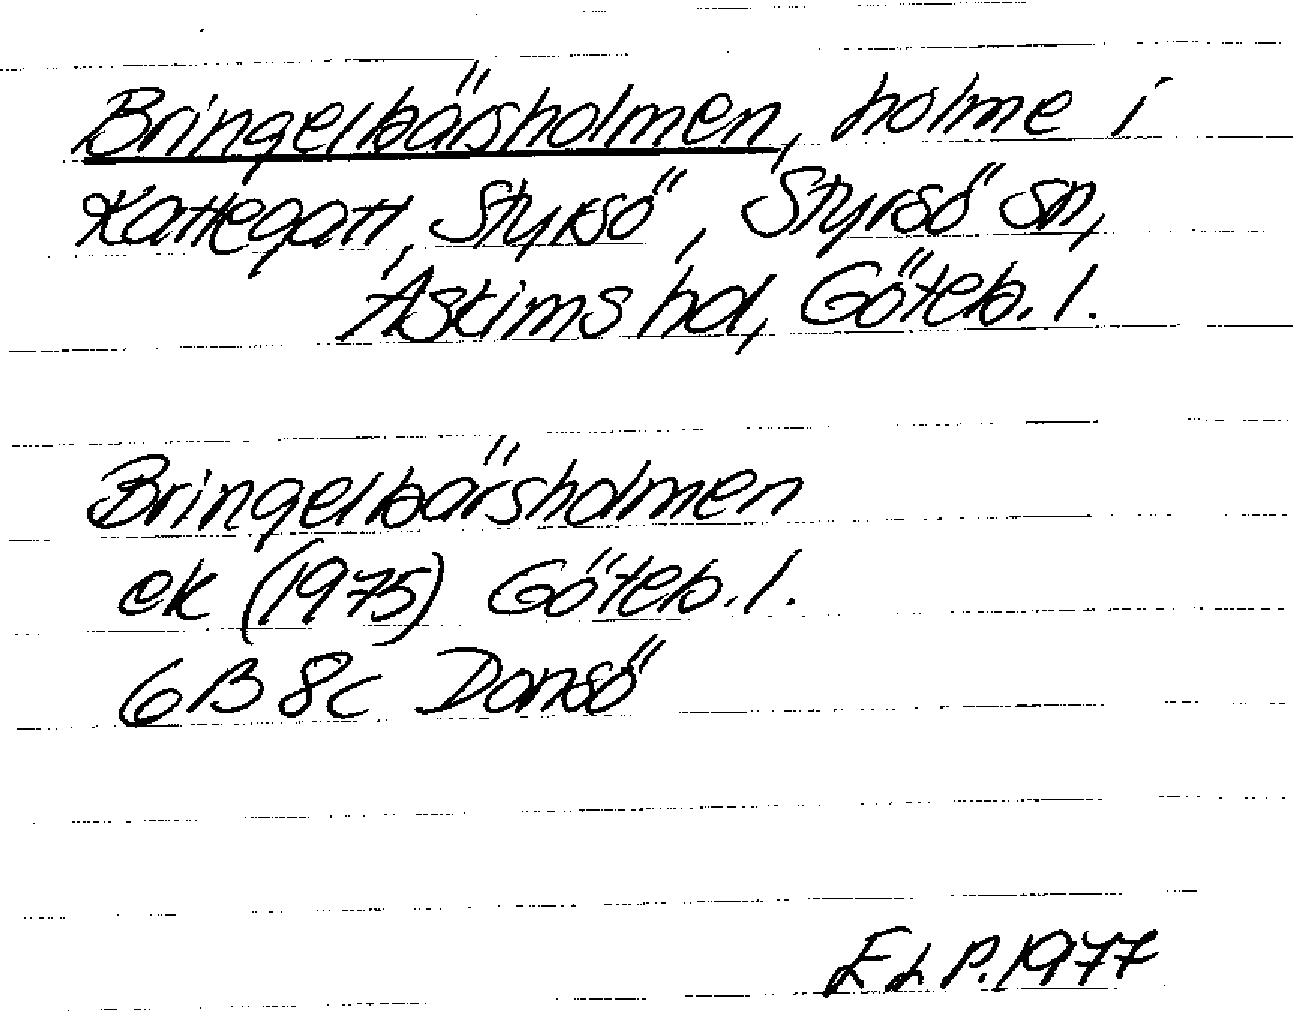 Bringelbärsholmen, holme i
Kattegatt, Styrsö, Styrsö sn,
Askims hd, Göteb. l.
Bringelbärsholmen
ek (1975) Göteb. l.
6B 8c Donsö
ELP. 1977